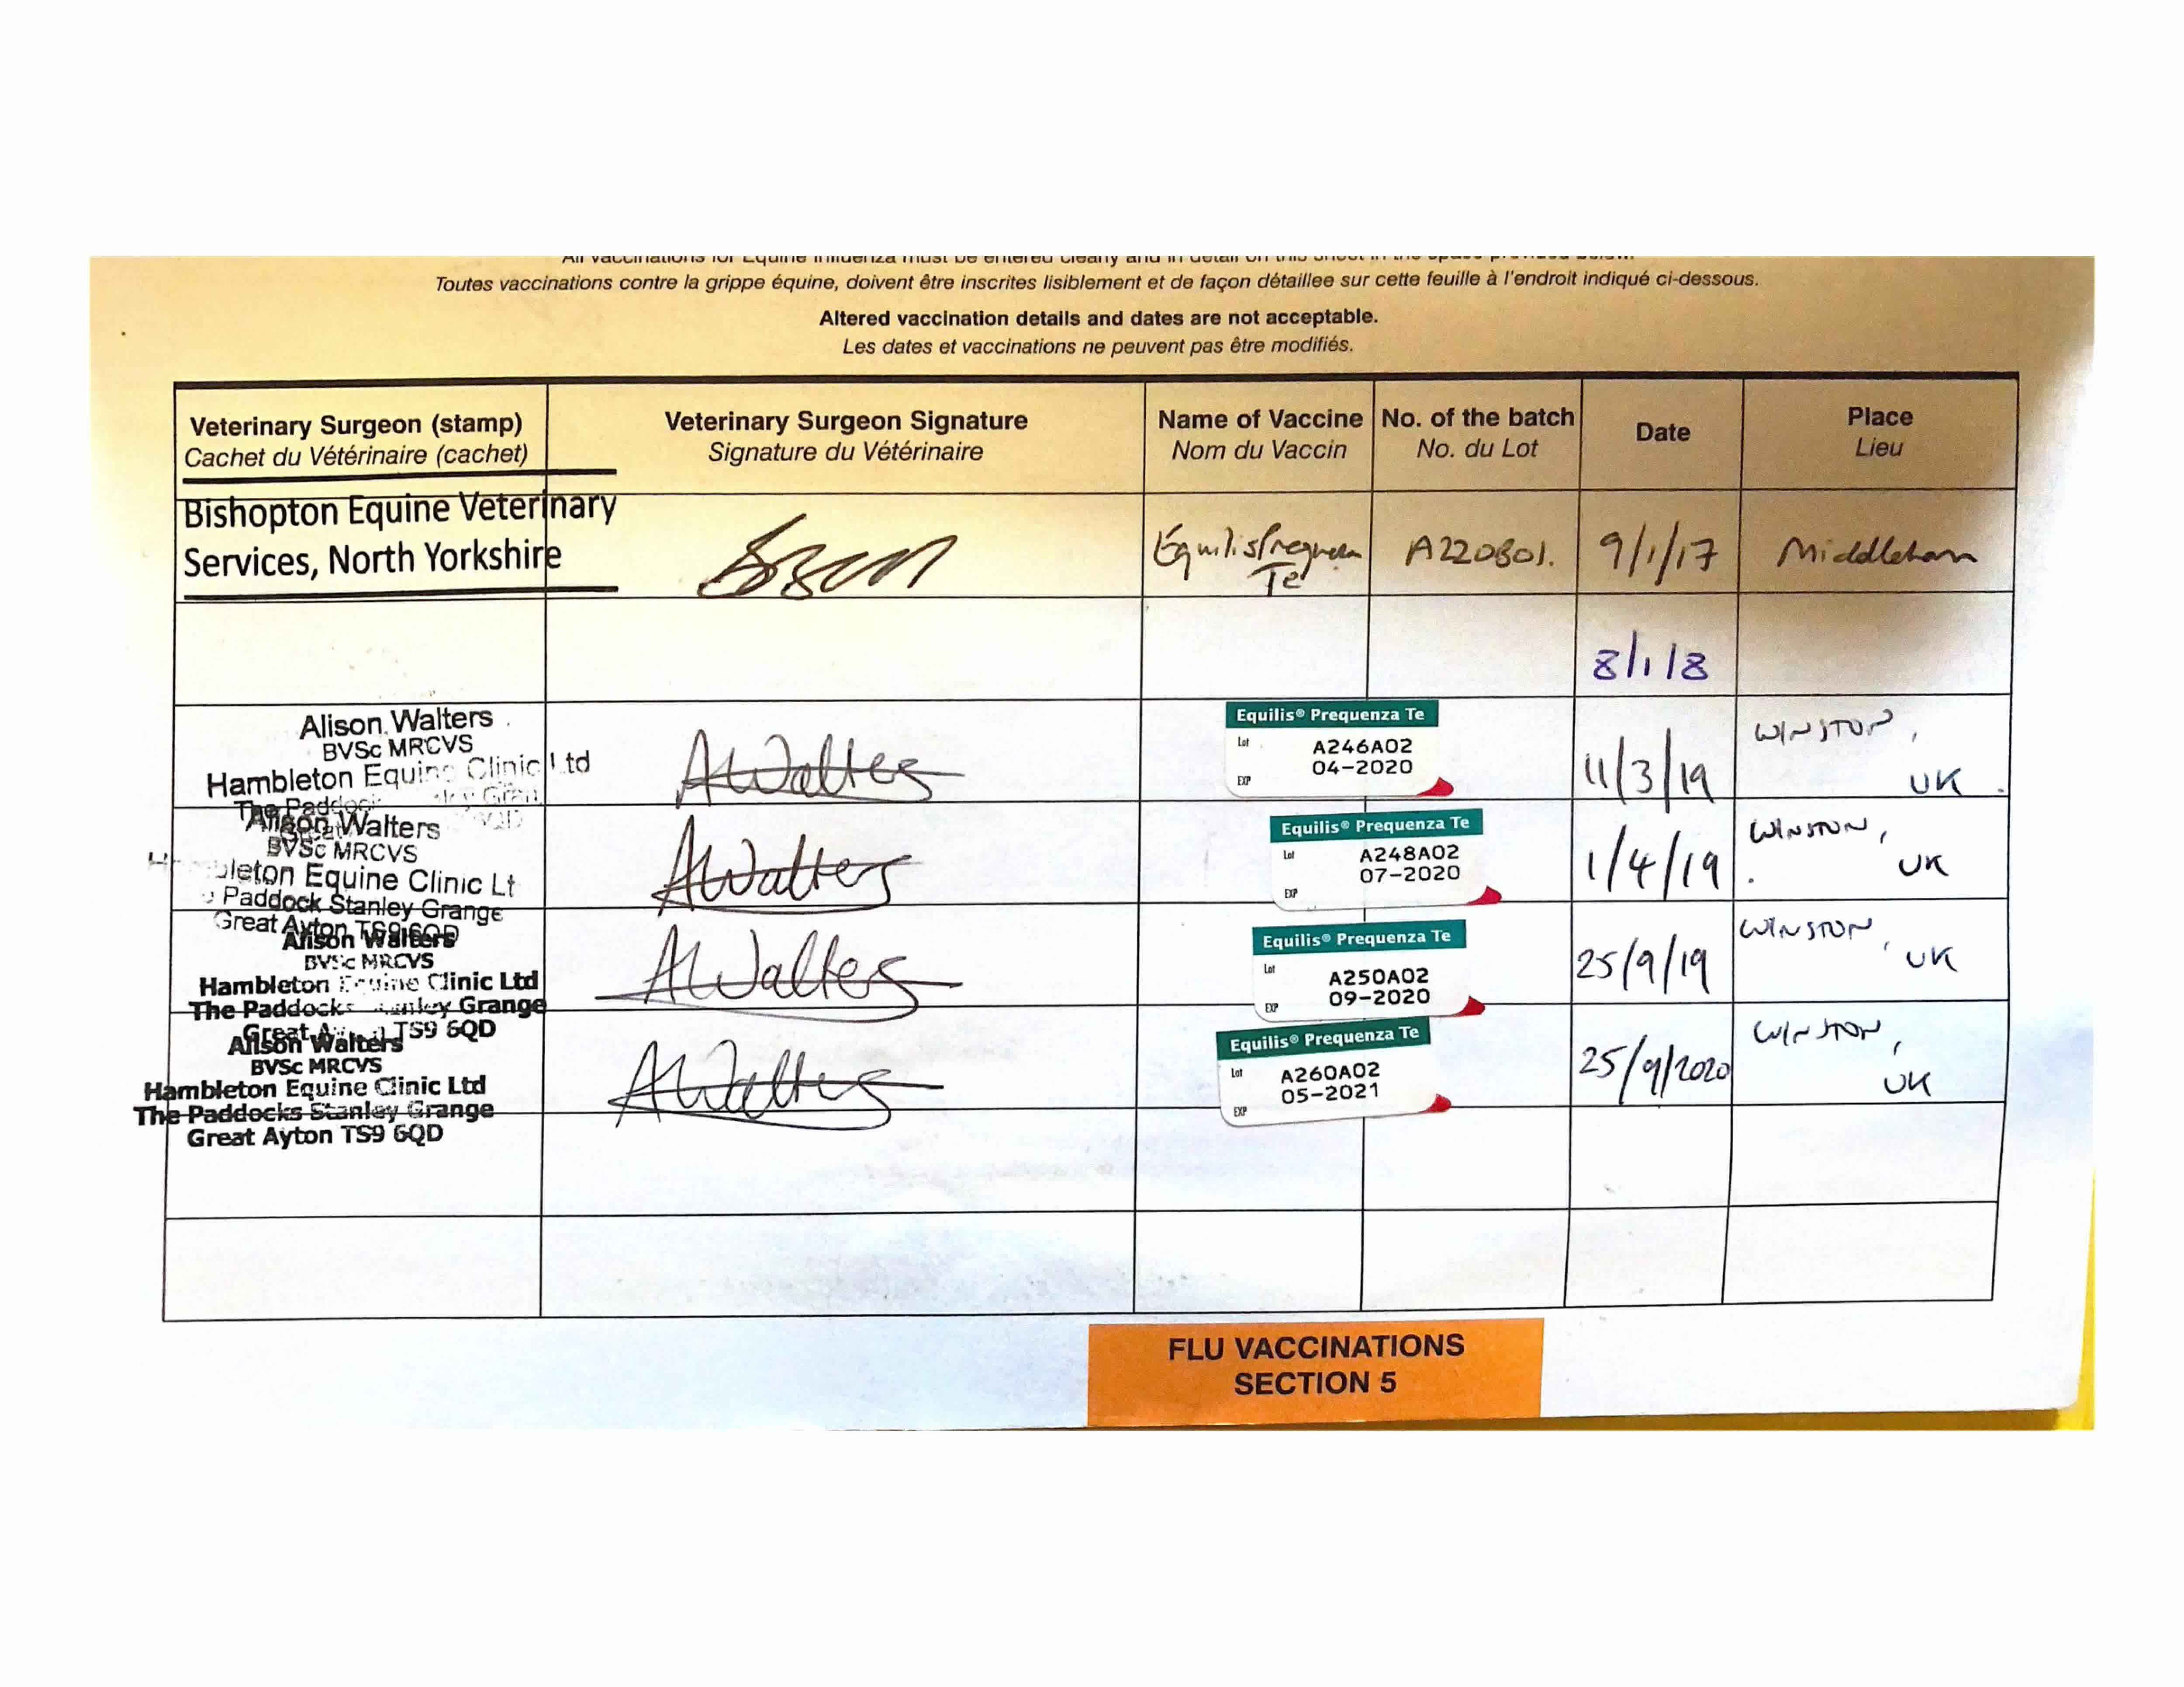 All vaccinations for Equine Influenza must be entered clearly and in detail on this sheet in the space provided below.
Toutes vaccinations contre la grippe équine, doivent être inscrites lisiblement et de façon détaillee sur cette feuille à l'endroit indiqué ci-dessous.
Altered vaccination details and dates are not acceptable.
Les dates et vaccinations ne peuvent pas être modifiés.
Veterinary Surgeon (stamp)
Cachet du Vétérinaire (cachet)
Veterinary Surgeon Signature
Signature du Vétérinaire
Name of Vaccine
Nom du Vaccin
No. of the batch
No. du Lot
Date
Place
Lieu
Bishopton Equine Veterinary
Services, North Yorkshire
Equilis
Te
A220B01.
9/1/17
Middleham
8/1/18
Alison Walters
BVSc MRCVS
Hambleton Equine Clinic Ltd
AWalters
Equilis® Prequenza Te
Lot
A246A02
04-2020
EXP
11/3/19
WINSTON,
UK.
Alison Walters
BVSc MRCVS
Equine Clinic Lt
Paddock Stanley Grange
Great Ayton TS9 6QD
AWalters
Equilis® Prequenza Te
Lot
A248A02
07-2020
EXP
1/4/19
WINSTON,
UK
Alison Walters
BVSc MRCVS
Hambleton Equine Clinic Ltd
The Paddocks Stanley Grange
Great Ayton TS9 6QD
AWalters
Equilis® Prequenza Te
Lot
A250A02
09-2020
EXP
25/9/19
WINSTON,
UK
Alison Walters
BVSc MRCVS
Hambleton Equine Clinic Ltd
The Paddocks Stanley Grange
Great Ayton TS9 6QD
AWalters
Equilis® Prequenza Te
Lot
A260A02
05-2021
EXP
25/9/2020
WINSTON,
UK
FLU VACCINATIONS
SECTION 5